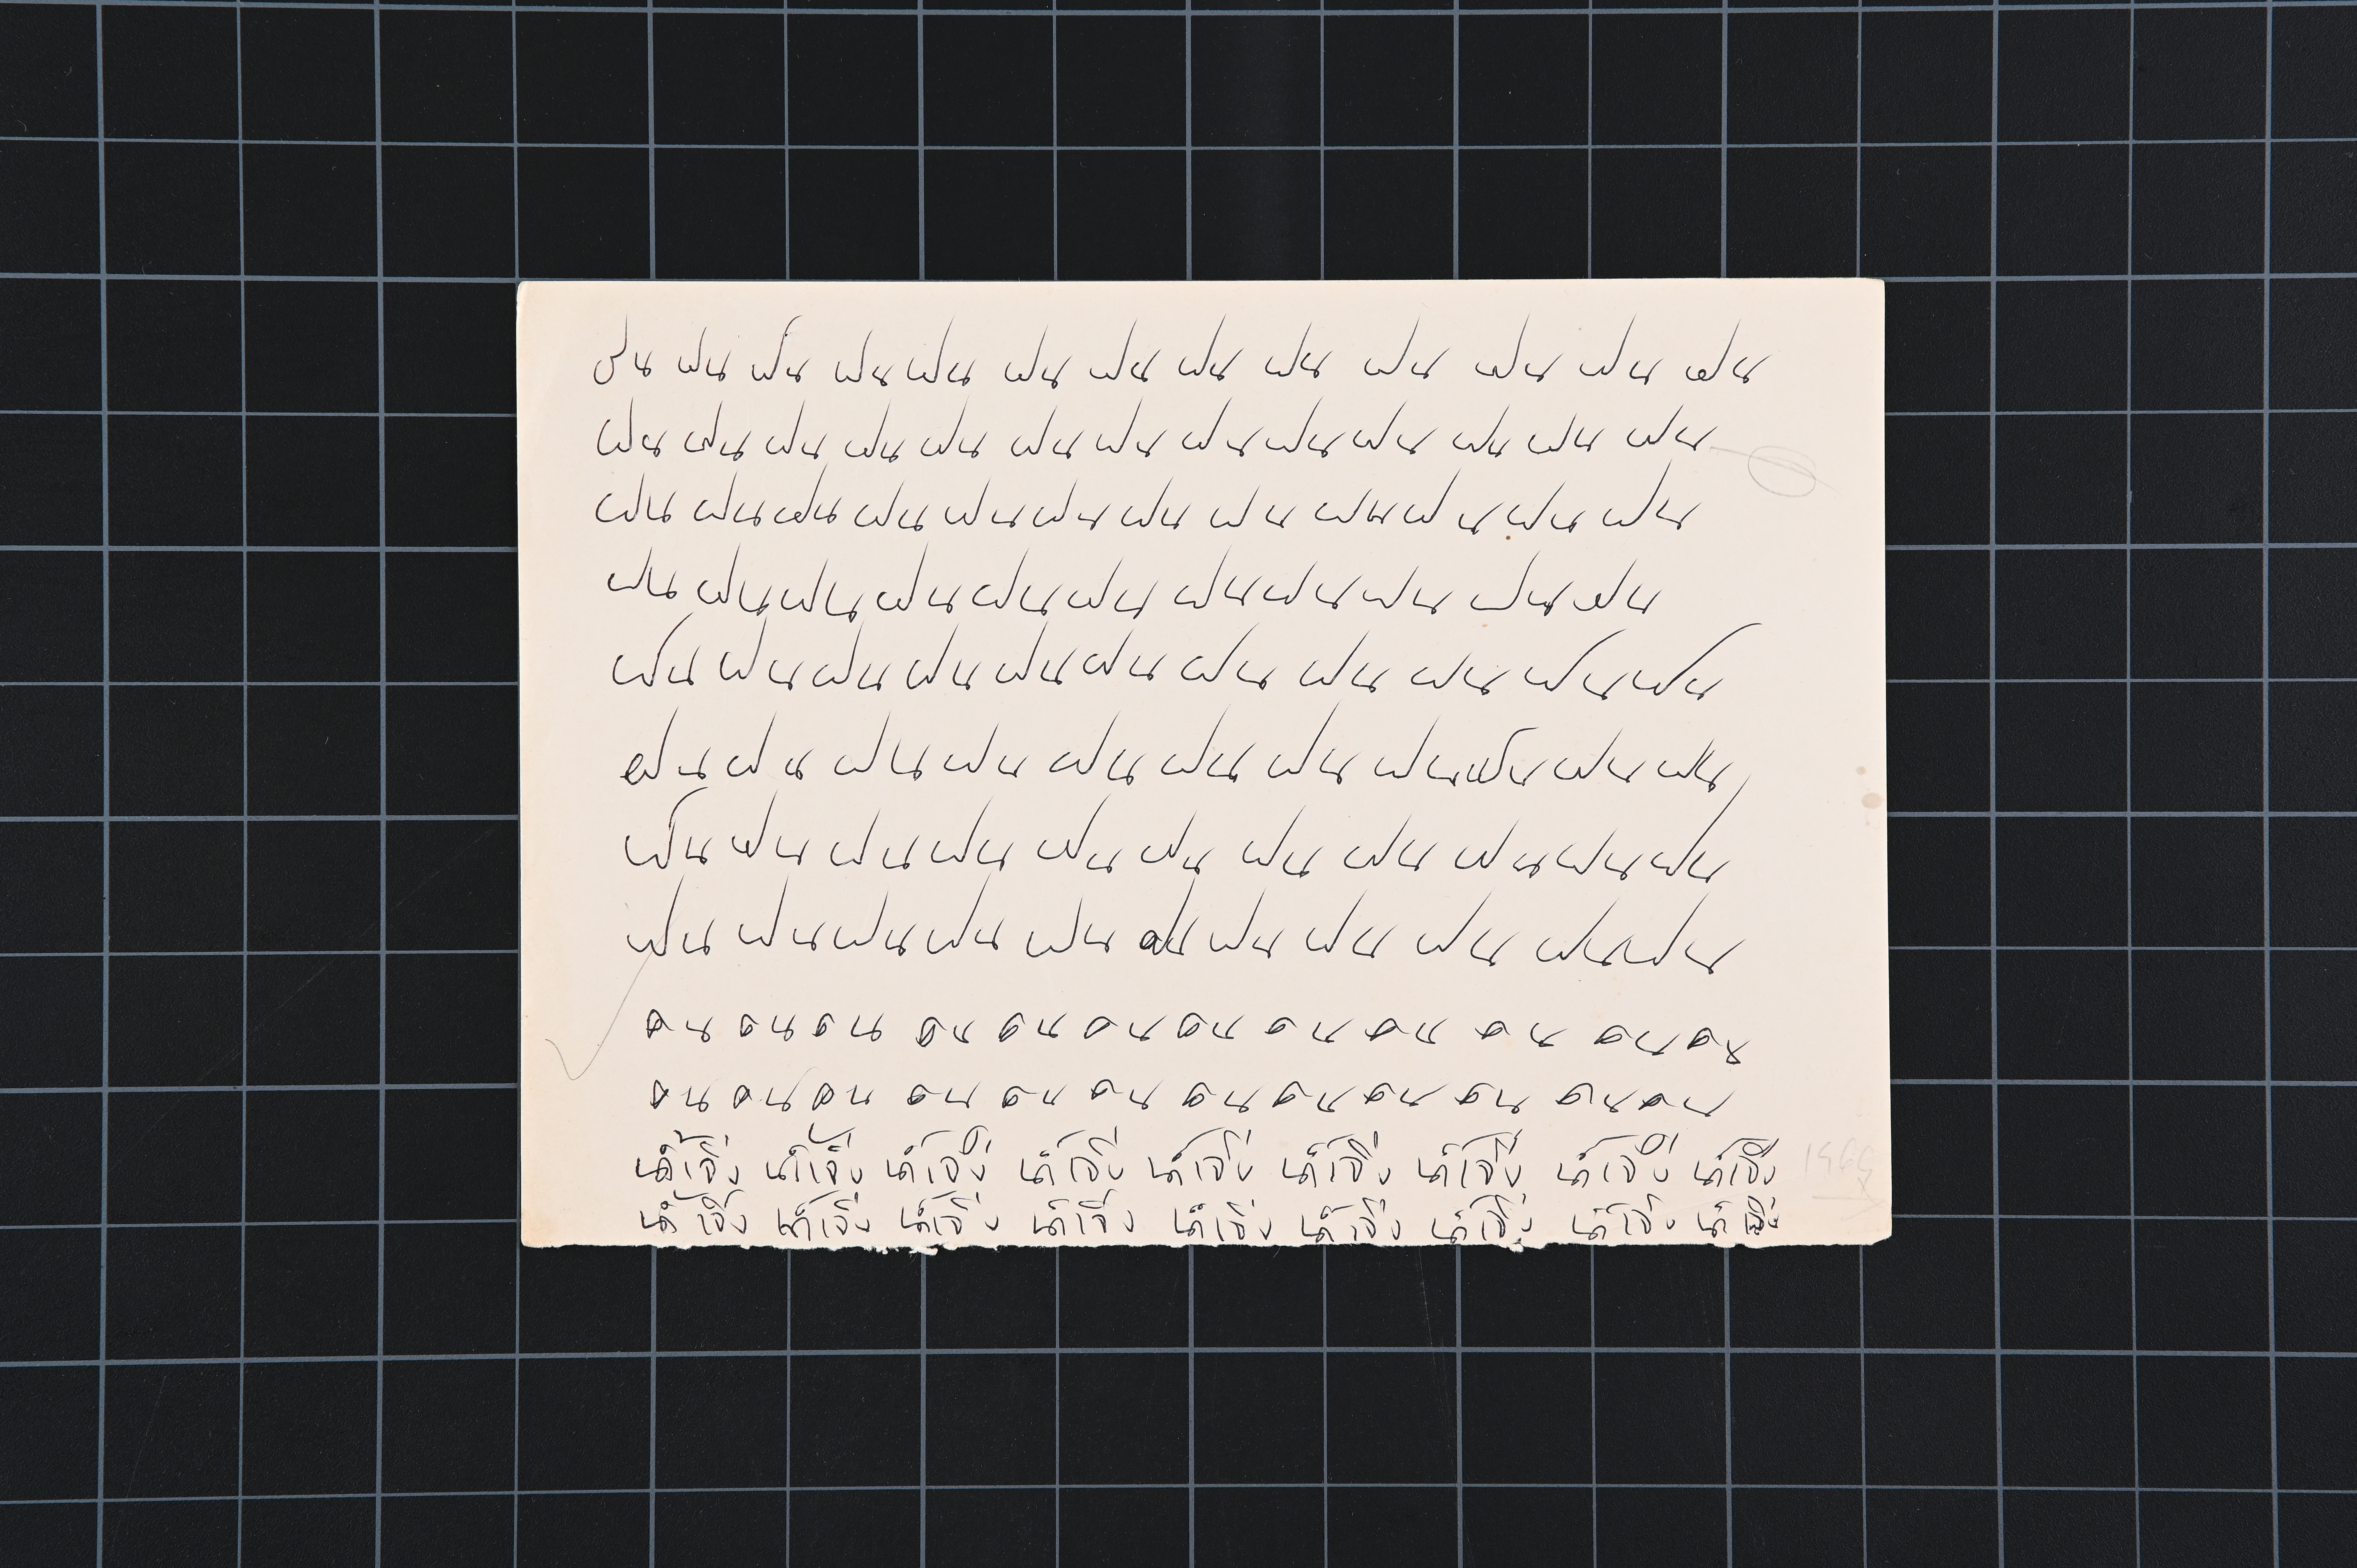 ฝน ฝน ฝน ฝน ฝน ฝน ฝน ฝน ฝน ฝน ฝน ฝน ฝน
ฝน ฝน ฝน ฝน ฝน ฝน ฝน ฝน ฝน ฝน ฝน ฝน ฝน
ฝน ฝน ฝน ฝน ฝน ฝน ฝน ฝน ฝน ฝน ฝน ฝน
ฝน ฝน ฝน ฝน ฝน ฝน ฝน ฝน ฝน ฝน ฝน
ฝน ฝน ฝน ฝน ฝน ฝน ฝน ฝน ฝน ฝน ฝน
ฝน ฝน ฝน ฝน ฝน ฝน ฝน ฝน ฝน ฝน ฝน
ฝน ฝน ฝน ฝน ฝน ฝน ฝน ฝน ฝน ฝน ฝน
ฝน ฝน ฝน ฝน ฝน ฝน ฝน ฝน ฝน ฝน ฝน
คน คน คน คน คน คน คน คน คน คน คน คน
คน คน คน คน คน คน คน คน คน คน คน คน
น้ำเจิ่ง น้ำเจิ่ง น้ำเจิ่ง น้ำเจิ่ง น้ำเจิ่ง น้ำเจิ่ง น้ำเจิ่ง น้ำเจิ่ง น้ำเจิ่ง
น้ำเจิ่ง น้ำเจิ่ง น้ำเจิ่ง น้ำเจิ่ง น้ำเจิ่ง น้ำเจิ่ง น้ำเจิ่ง น้ำเจิ่ง น้ำเจิ่ง